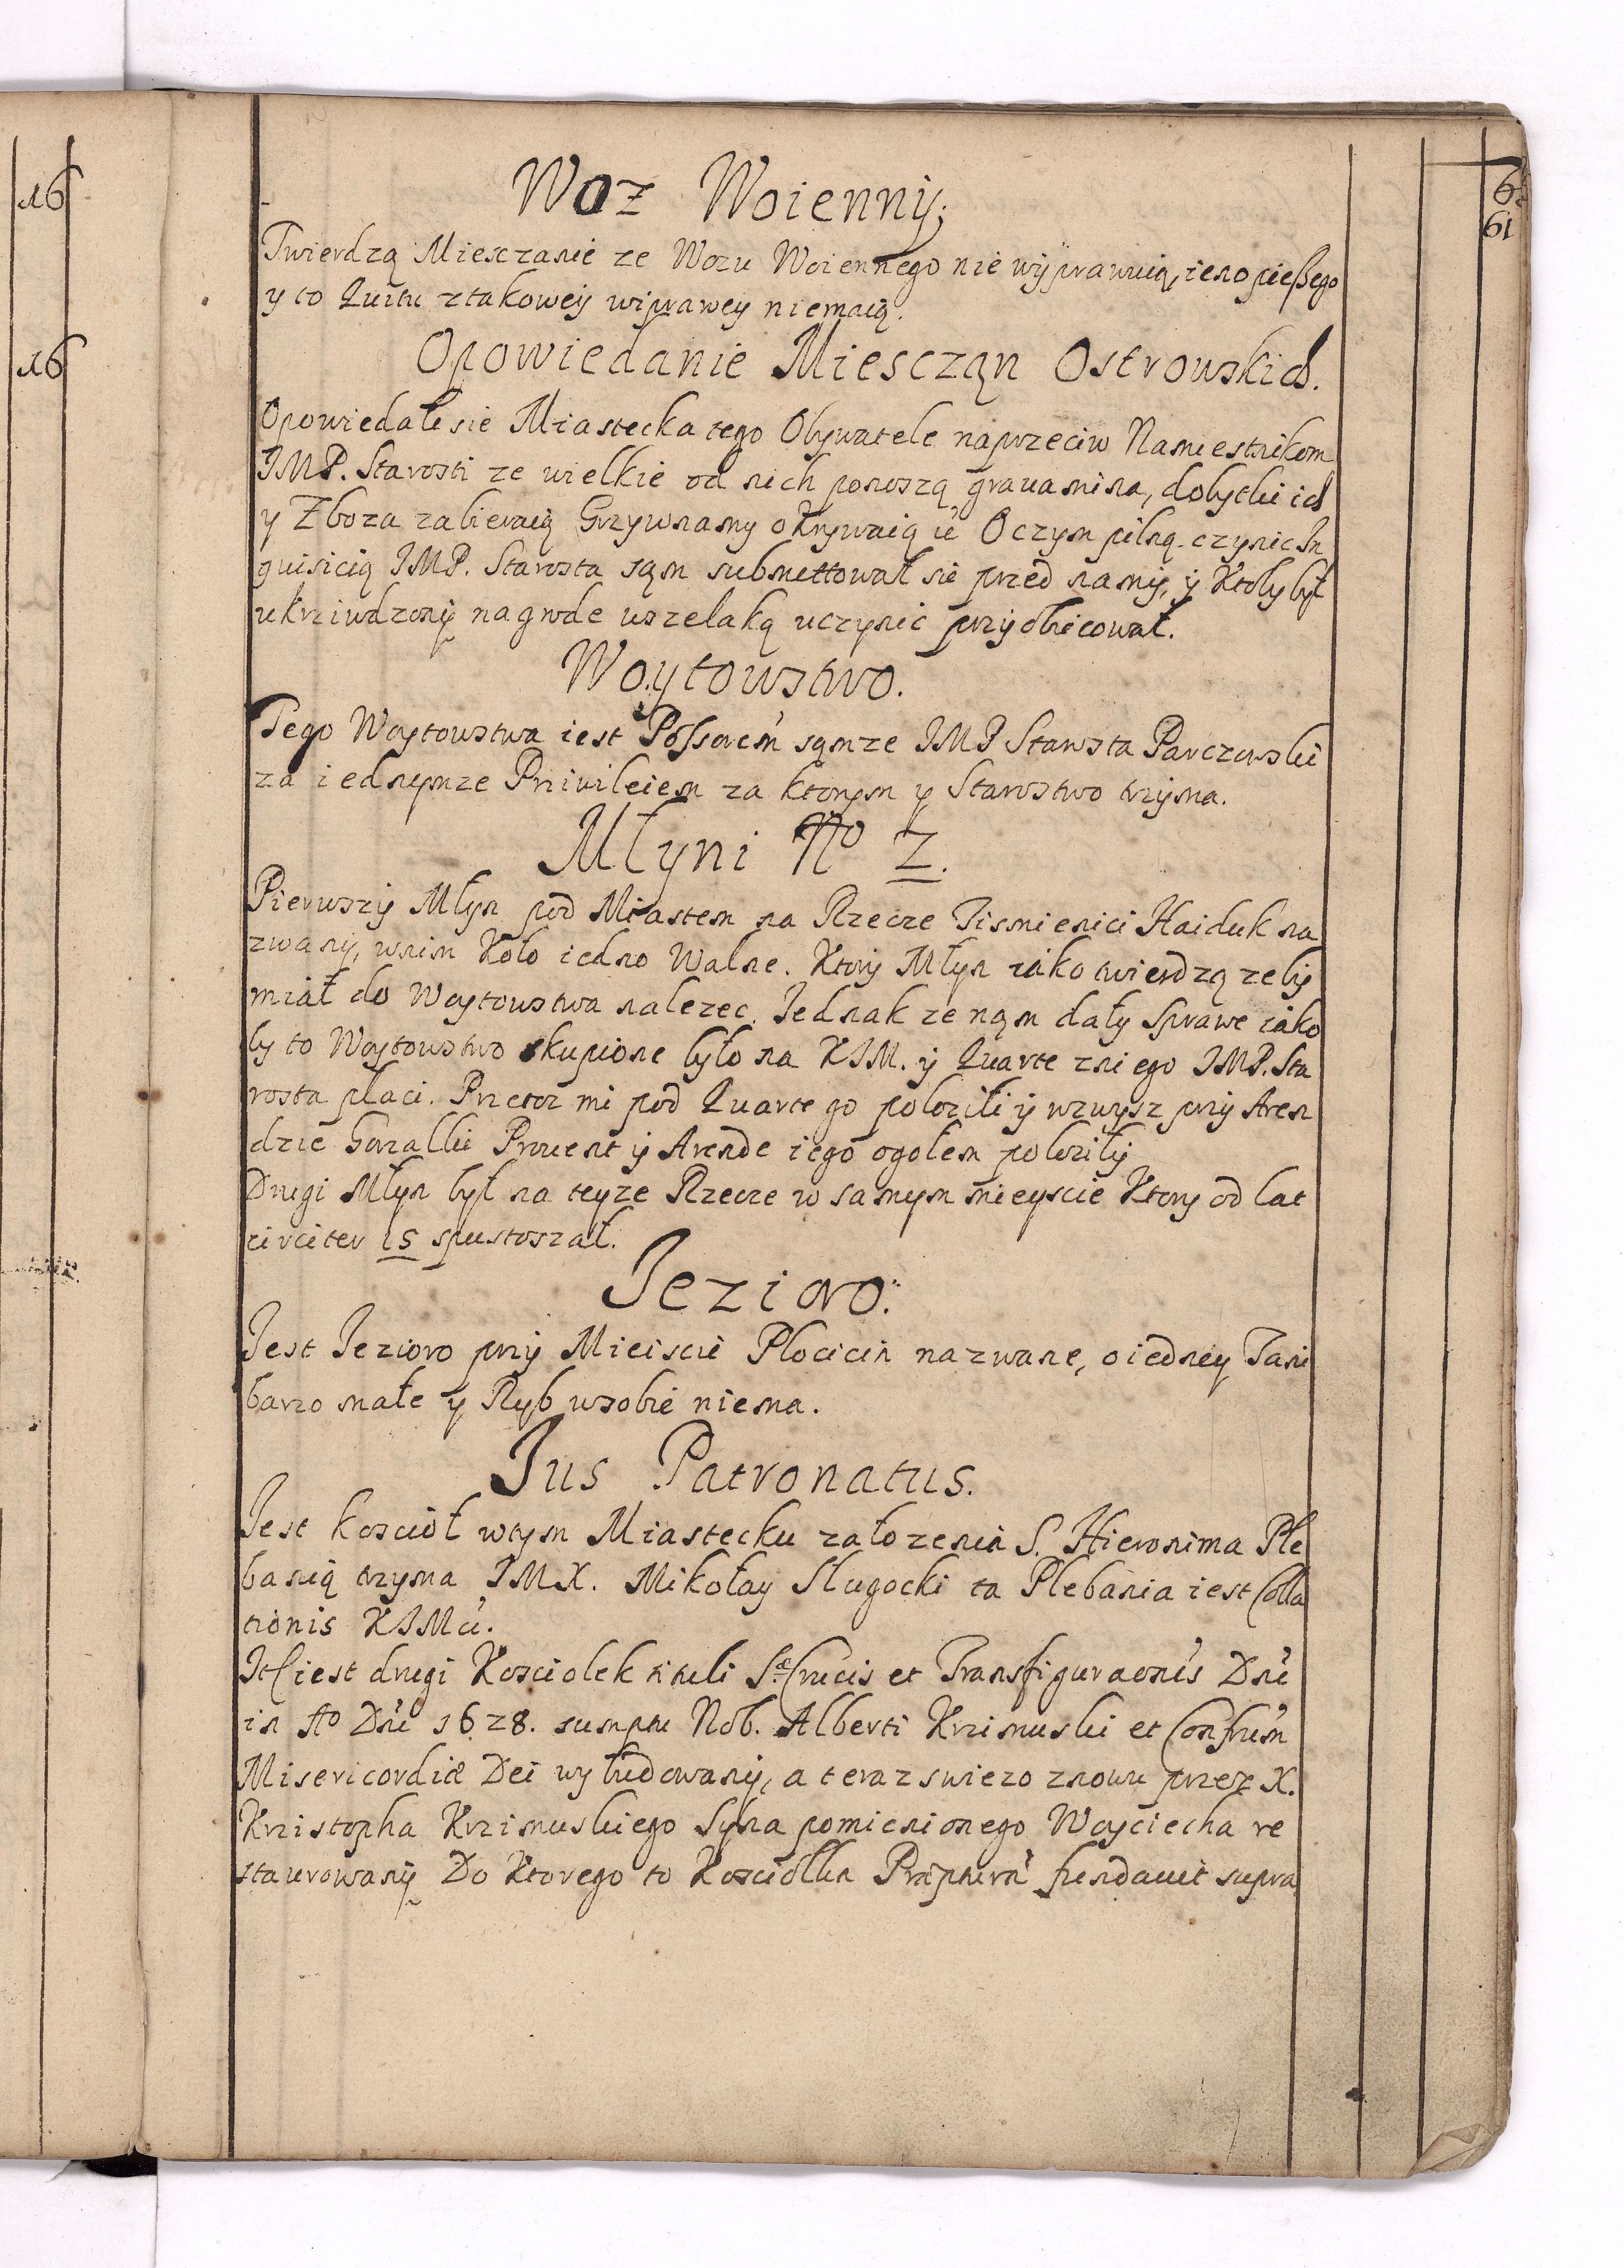 Woz Woienny;
Twierdzą Miesczanie ze Wozu Woiennego nie wyprawuią, ieno pießego
y to Quitu ztakowey wiprawey niemaią.
Opowiedanie Miesczan Ostrowskich.
Opowiedali sie Miastecka tego Obywatele naprzeciw Namiestnikom
JMP. Starosti ze wielkie od nich ponoszą grauamina, dobytki ich
y Zboza zabieraią Grzywnamy okrywaią ie Oczym pilną czynic In
quisicią JMP. Starosta sąm submittował sie przed namy, y Ktoby był
ukrziwdzony nagrode wszelaką uczynic przyobiecował.
Woytowstwo.
Tego Woytowstwa iest Possorem sąmze JMP Starosta Parczewski
za iednymze Priuileiem za ktorym y Starostwo trzyma.
Młyni No 2.
Pierwszy Młyn pod Miastem na Rzecze Tismienici Haiduk na
zwany, wnim Koło iedno Walne. Ktory Młyn iako twierdzą zeby
miał do Woytowstwa nalezec. Jednak ze nąm dały Sprawe iako
by to Woytowstwo skupione było na KJM. y Quarte zniego JMP. Sta
rosta płaci. Przetoz mi pod Quarte go połozili y wzwysz przy Aren
dzie Gorzałki Prouent y Arende iego ogołem połoziły
Drugi Młyn był na teyze Rzecze w samym mieyscie Ktory od lat
circiter 15 spustoszał.
Jezioro:
Jest Jezioro przy Mieiscie Plocicin nazwane, o iedney Tani
barzo małe y Ryb wsobie niema.
Jus Patronatus.
Jest kosciół wtym Miastecku załozenia S. Hieronima Ple
banią trzyma JMX. Mikołay Sługocki ta Plebania iest Colla
tionis KJMci.
It iest drugi Kosciolek tituli Sæ Crucis et Transfiguraonis Dni
in Ao Dni 1628. sumptu Nob. Alberti Krzimuski et Confrum
Misericordiæ Dei wybudowany, a teraz swiezo znowu przez X.
Kristopha Krzimuskiego Syna pomienionego Woyciecha re
staurowany Do Ktorego to Kosciołka fundauit supra